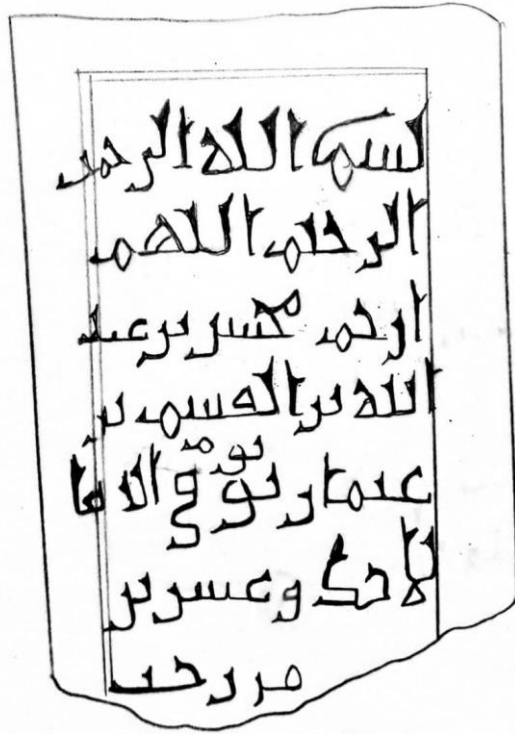 بسم الله الرحمن
الرحيم اللهم
ارحم محسن بن عبد
الله بن القسم بن
عثمان توفي يوم
لأحد وعشرين
من رجب